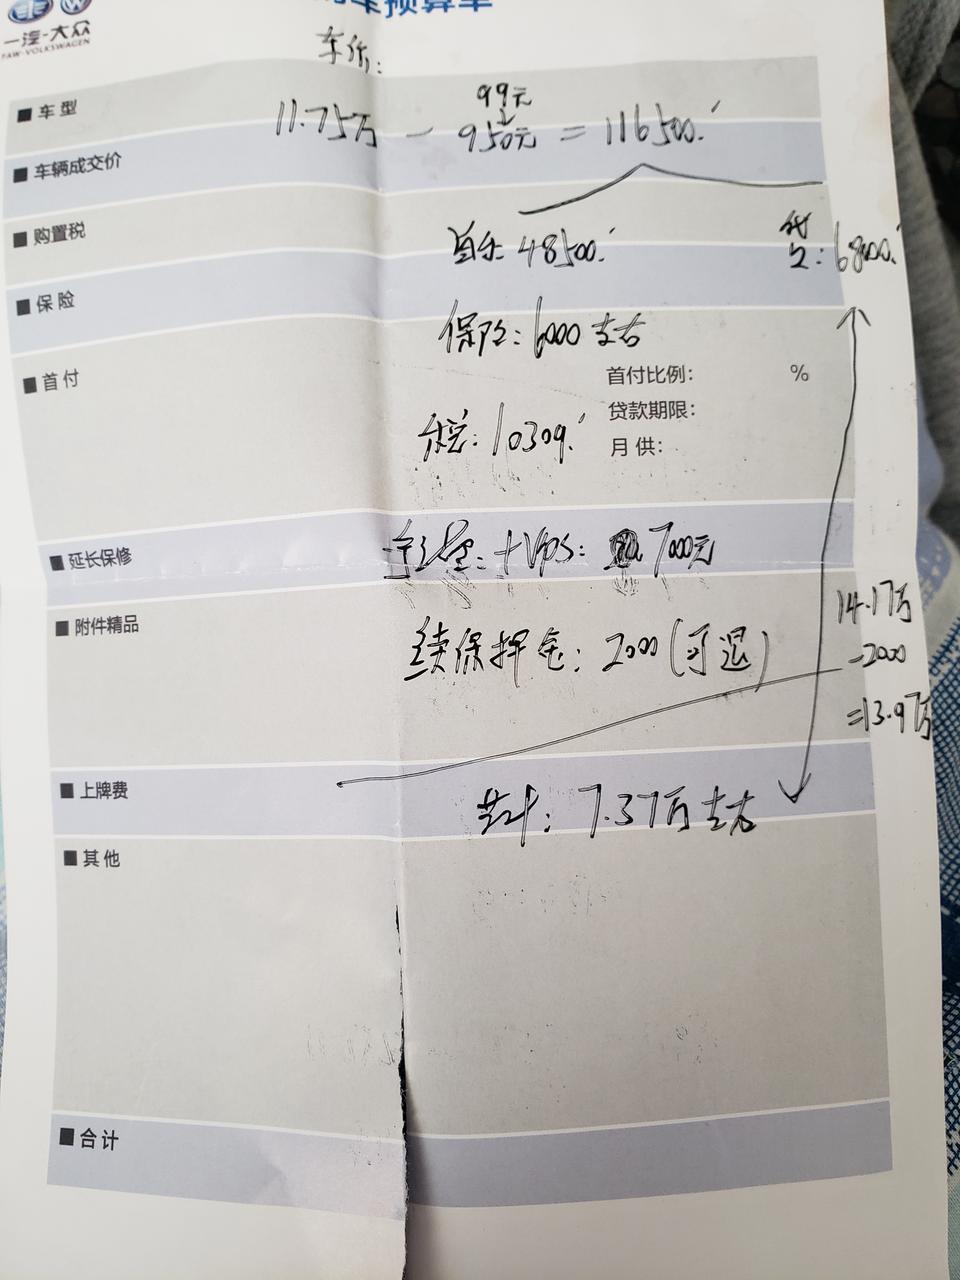 一汽-大众
FAW-VOLKSWAGEN
购车预算单
车价:
■ 车型
99元
11.75万 - 950元 = 116500.
■ 车辆成交价
■ 购置税
首付 48500.
贷款: 68000.
■ 保险
保险: 6000 左右
■ 首付
首付比例: %
贷款期限:
税: 10309.
月供:
■ 延长保修
+VPS: 7000元
■ 附件精品
14.17万
续保押金: 2000 (可退)
-2000
=13.97万
■ 上牌费
共计: 7.37万 左右
■ 其他
■ 合计